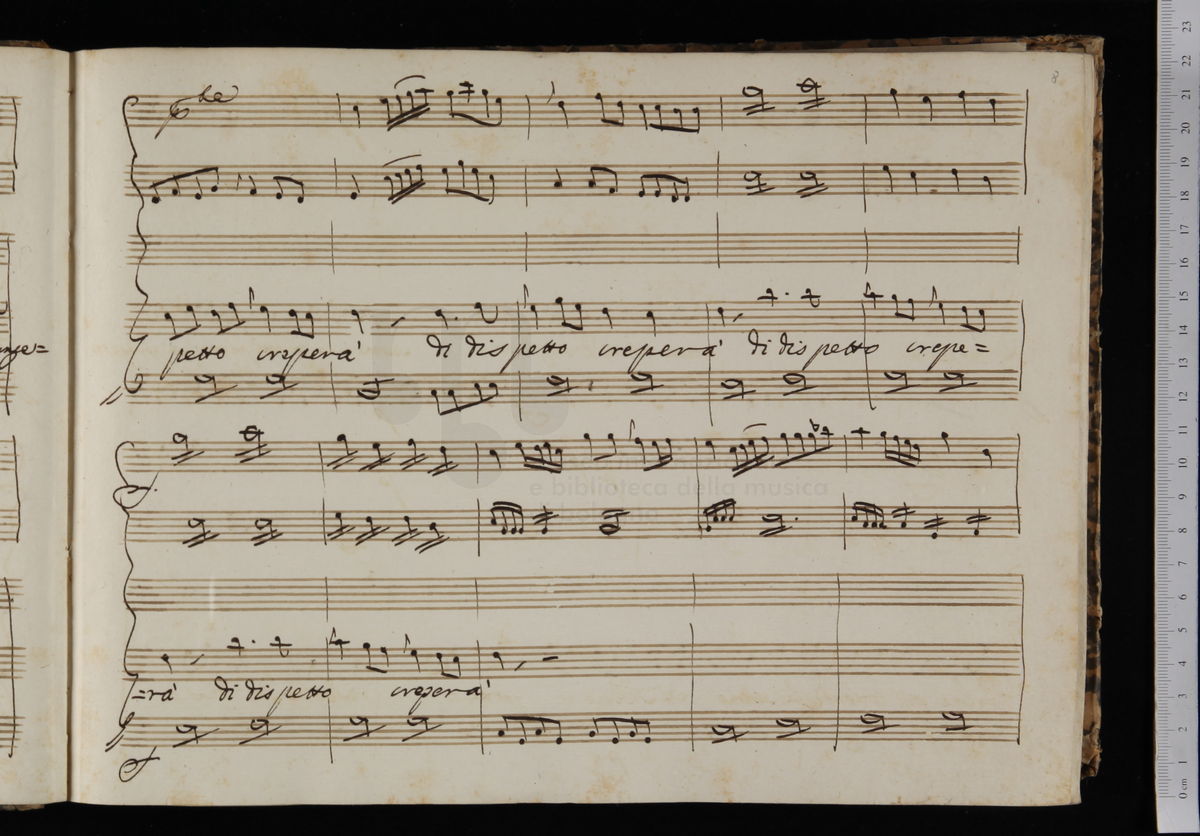 8
petto creperà di dispetto creperà di dispetto crepe=
=rà di dispetto creperà
e biblioteca della musica
0 cm 1 2 3 4 5 6 7 8 9 10 11 12 13 14 15 16 17 18 19 20 21 22 23